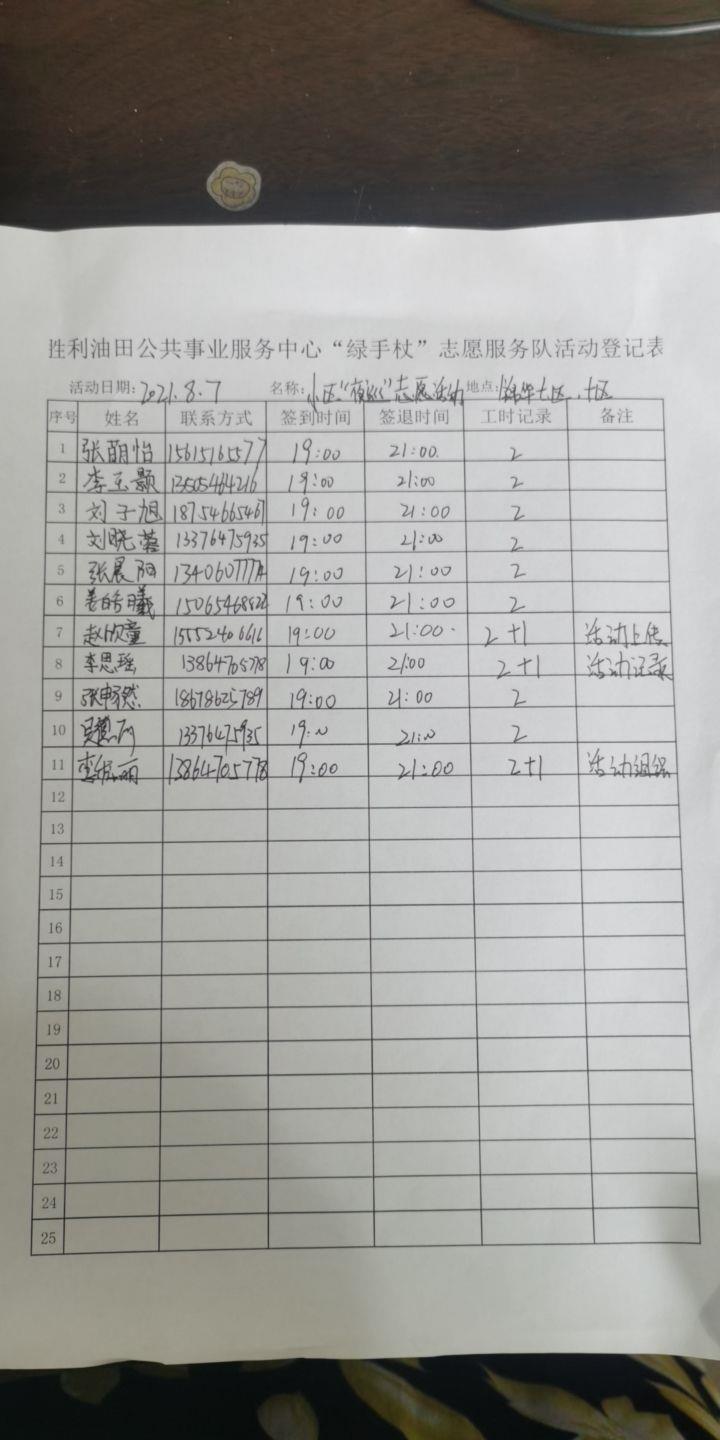 胜利油田公共事业服务中心“绿手杖”志愿服务队活动登记表
活动日期:2021.8.7 名称:小区“夜巡”志愿活动 地点:锦华七区、十区
序号 姓名 联系方式 签到时间 签退时间 工时记录 备注
1 张萌怡 15615165577 19:00 21:00. 2
2 李玉颢 13505464216 19:00 21:00 2
3 刘子旭 18754665467 19:00 21:00 2
4 刘晓蓉 13376475935 19:00 21:00 2
5 张晨阳 19:00 21:00 2
6 19:00 21:00 2
7 赵欣童 15552406616 19:00 21:00. 2+1 活动上传
8 李思瑶 13864705778 19:00 21:00 2+1 活动记录
9 张畅然 18678625789 19:00 21:00 2
10 13376475935 19:00 21:00 2
11 13864705778 19:00 21:00 2+1 活动组织
12
13
14
15
16
17
18
19
20
21
22
23
24
25